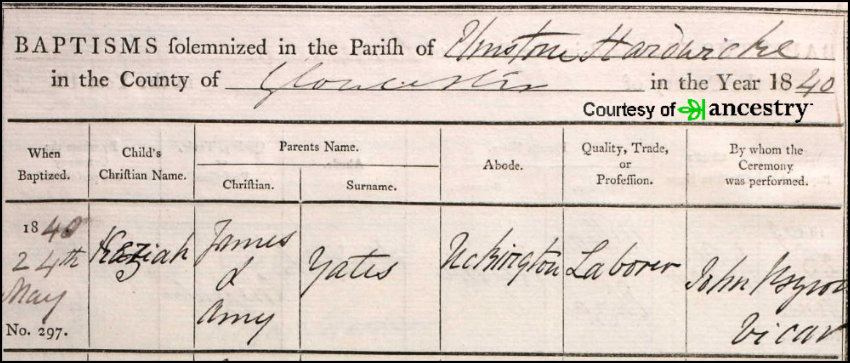 BAPTISMS solemnized in the Parish of Elmstone Hardwicke
in the County of Gloucester in the Year 1840
Courtesy of ancestry
When
Baptized.
Child's
Christian Name.
Parents Name.
Christian.
Surname.
Abode.
Quality, Trade,
or
Profession.
By whom the
Ceremony
was performed.
1840
24th
May
No. 297.
Keziah
James
&
Amy
Yates
Uckington
Laborer
John Byron
Vicar